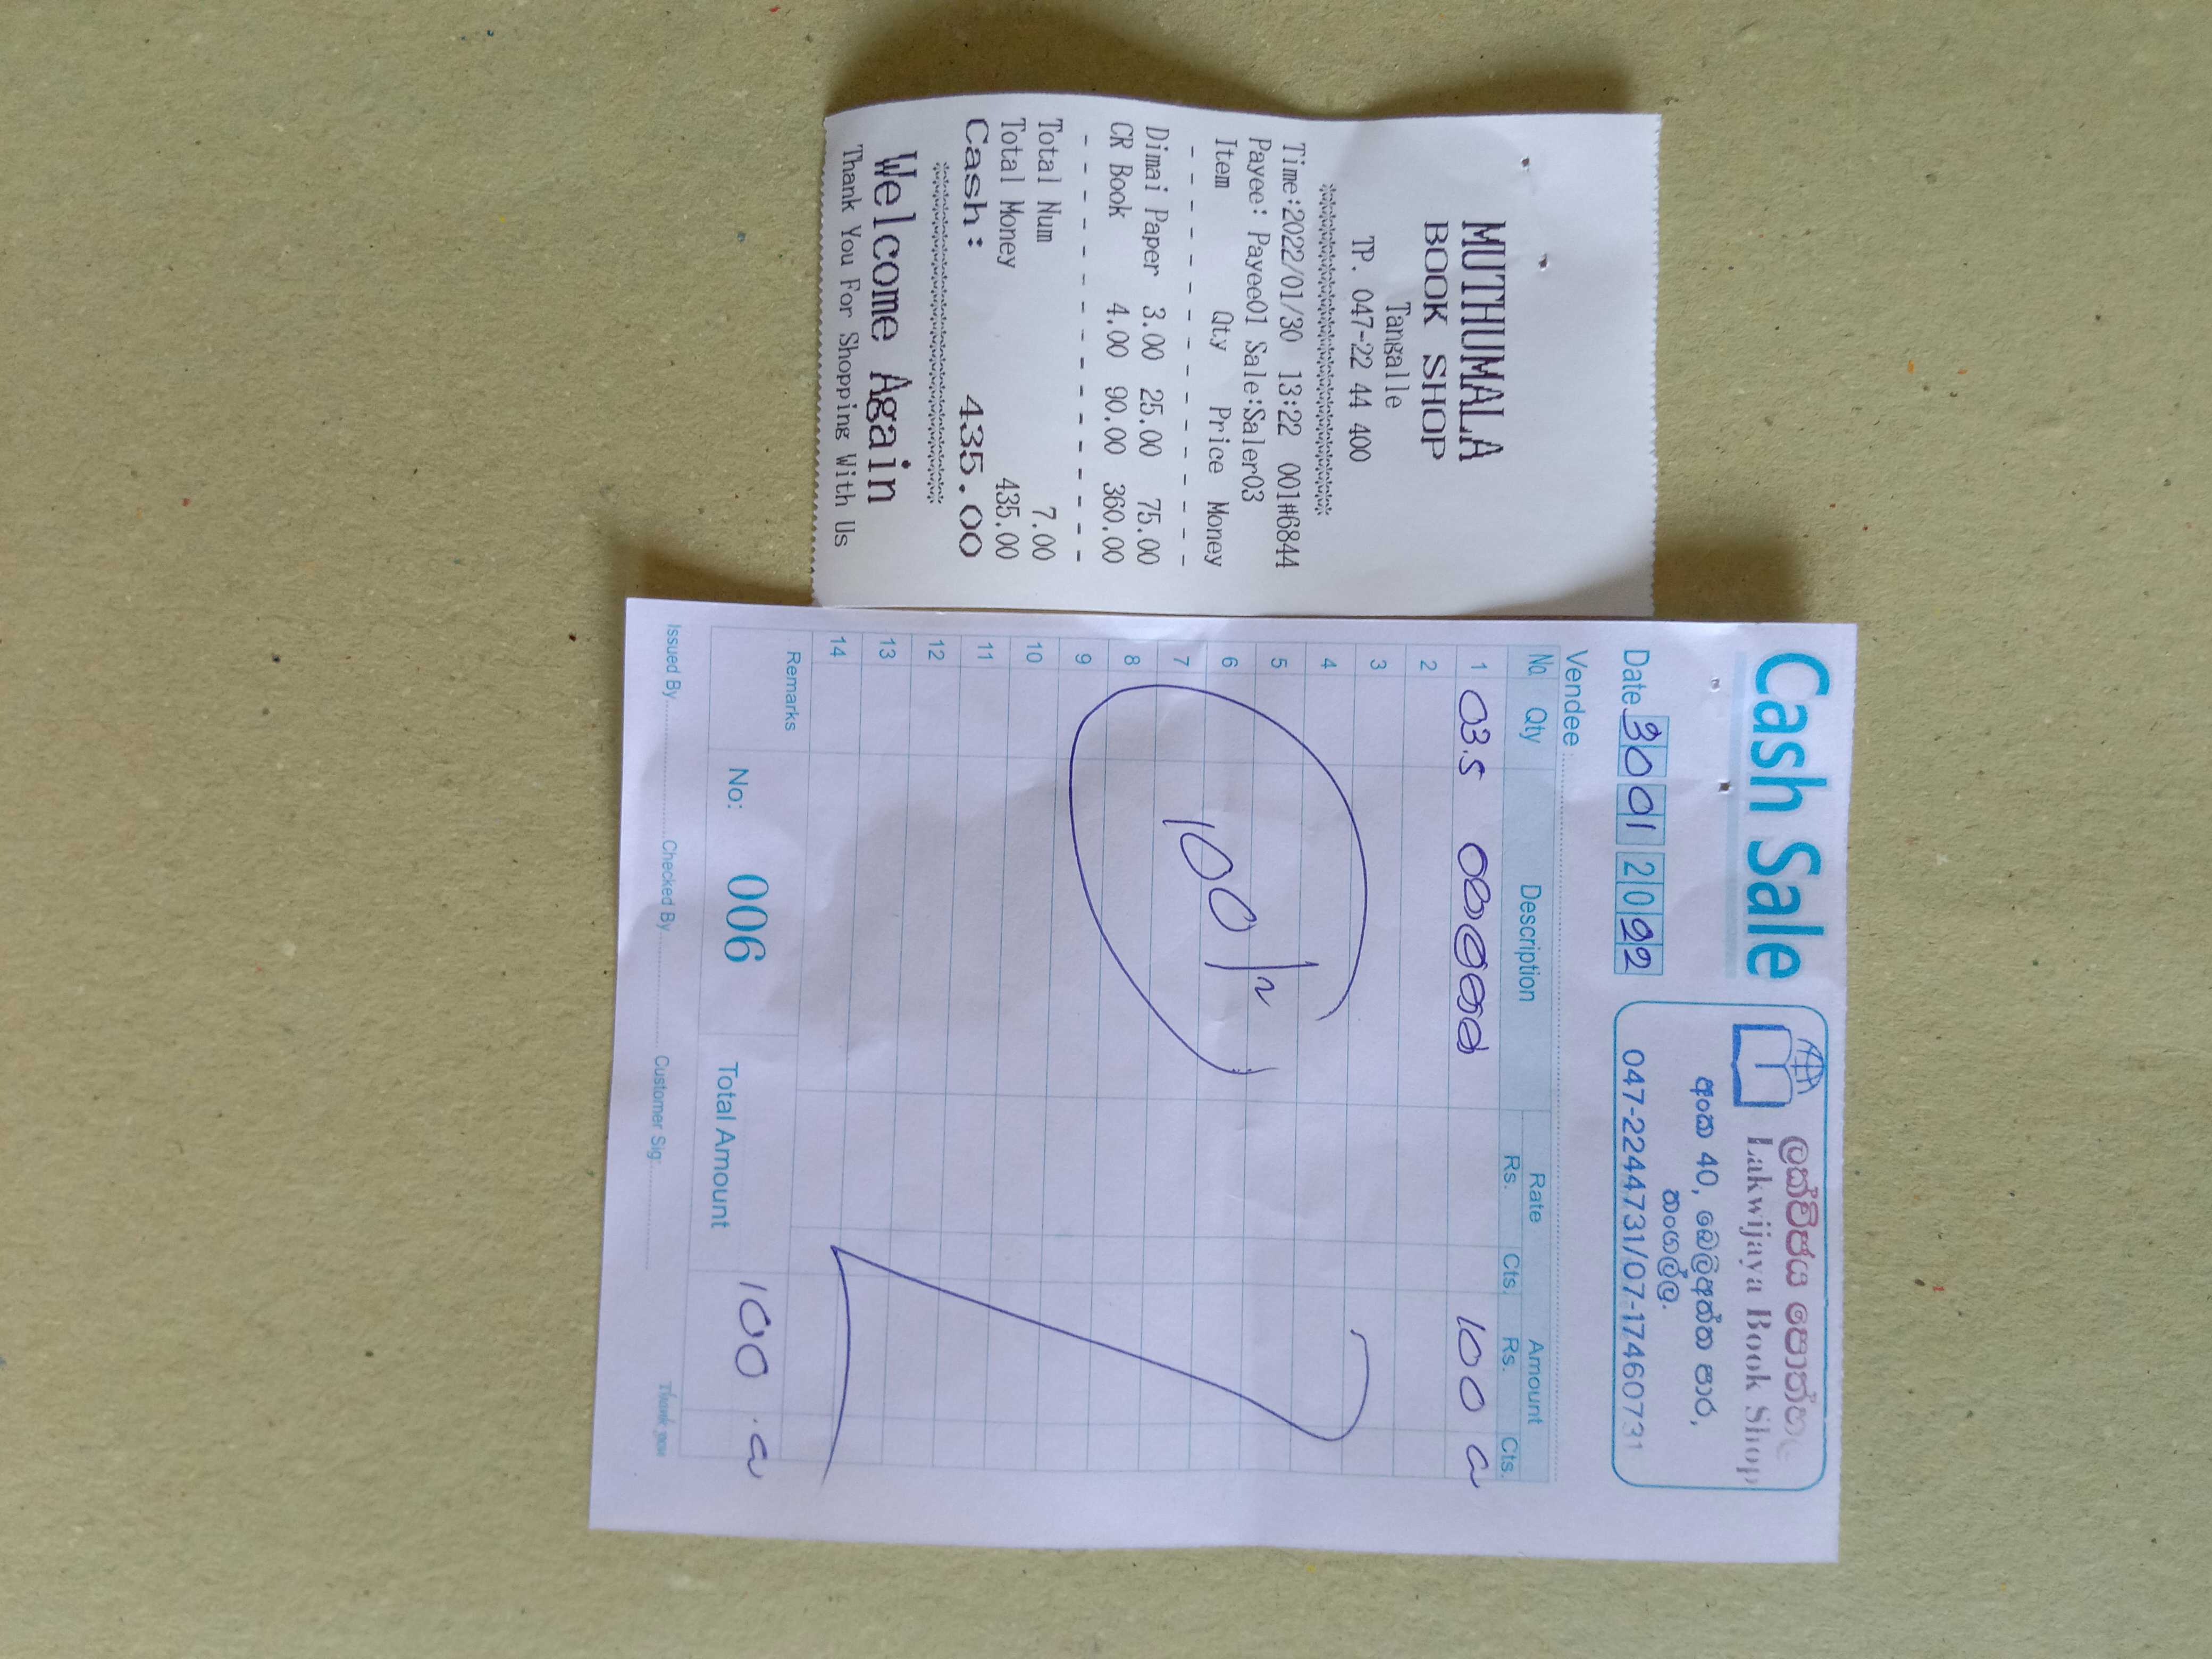 MUTHUMALA
BOOK SHOP
Tangalle
TP. 047-22 44 400
Time:2022/01/30 13:22 001#6844
Payee: Payee01 Sale:Saler03
Item Qty Price Money
Dimai Paper 3.00 25.00 75.00
CR Book 4.00 90.00 360.00
Total Num 7.00
Total Money 435.00
Cash: 435.00
Welcome Again
Thank You For Shopping With Us
Cash Sale
Date 30 01 2022
ලක්විජය පොත්හල
Lakwijaya Book Shop
අංක 40, බෙලිඅත්ත පාර,
තංගල්ල.
047-2244731/07-17460731
Vendee :
No. Qty Description Rate Amount
Rs. Cts. Rs. Cts.
1 03.5 100
2
3
4
5
6
7
8
9
10
11
12
13
14
100/=
Remarks
No: 006 Total Amount 100
Issued By Checked By Customer Sig: Thank you